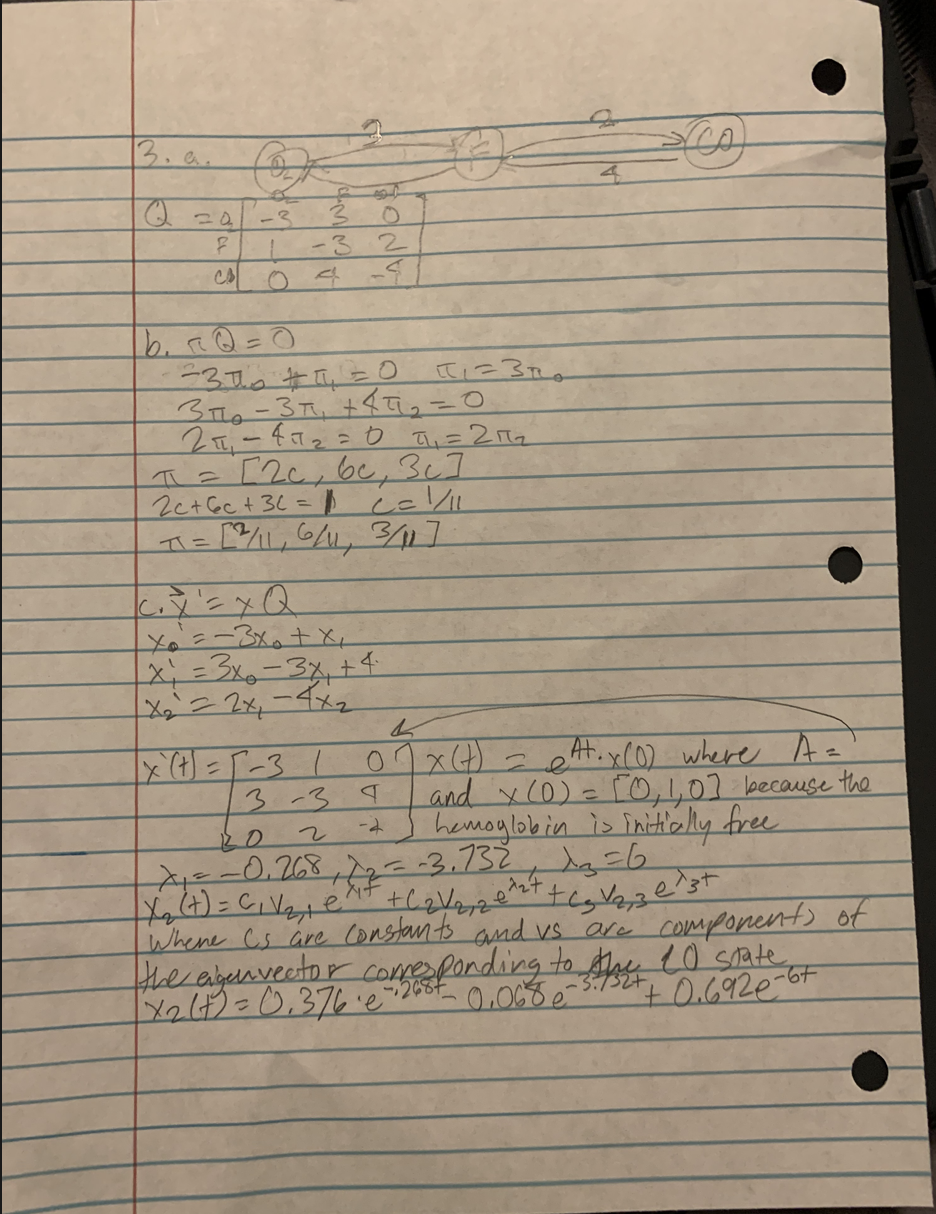 3. a. O₂ 3 F 2 CO
4
O₂ F
Q = O₂ [ -3 3 0
F 1 -3 2
CO 0 4 -4 ]
b. πQ = 0
-3π₀ + π₁ = 0 π₁ = 3π₀
3π₀ - 3π₁ + 4π₂ = 0
2π₁ - 4π₂ = 0 π₁ = 2π₂
π = [2c, 6c, 3c]
2c + 6c + 3c = 1 c = 1/11
π = [2/11, 6/11, 3/11]
c. x⃗' = xQ
x₀' = -3x₀ + x₁
x₁' = 3x₀ - 3x₁ + 4
x₂' = 2x₁ - 4x₂
x'(t) = [ -3 1 0 ] x(t) = e^{At}·x(0) where A =
3 -3 4 and x(0) = [0,1,0] because the
0 2 -4 hemoglobin is initially free
λ₁ = -0.268, λ₂ = -3.732, λ₃ = 6
x₂(t) = c₁v₂,₁e^{λ₁t} + c₂v₂,₂e^{λ₂t} + c₃v₂,₃e^{λ₃t}
where cs are constants and vs are components of
the eigenvector corresponding to the CO state
x₂(t) = 0.376·e^{-.268t} - 0.068e^{-3.732t} + 0.692e^{-6t}